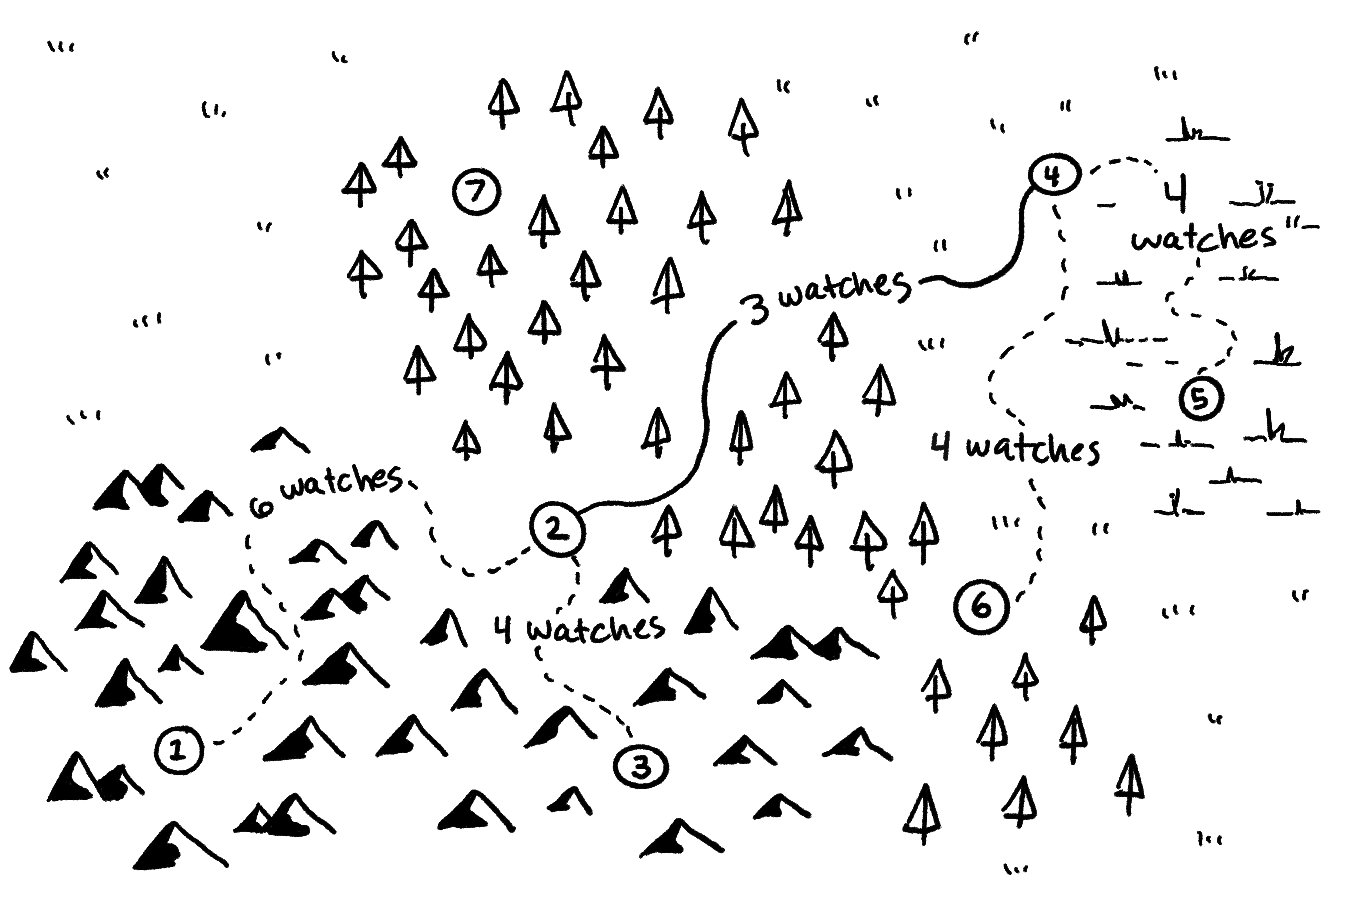 7
4
4
watches
3 watches
5
4 watches
6 watches
2
6
4 watches
1
3